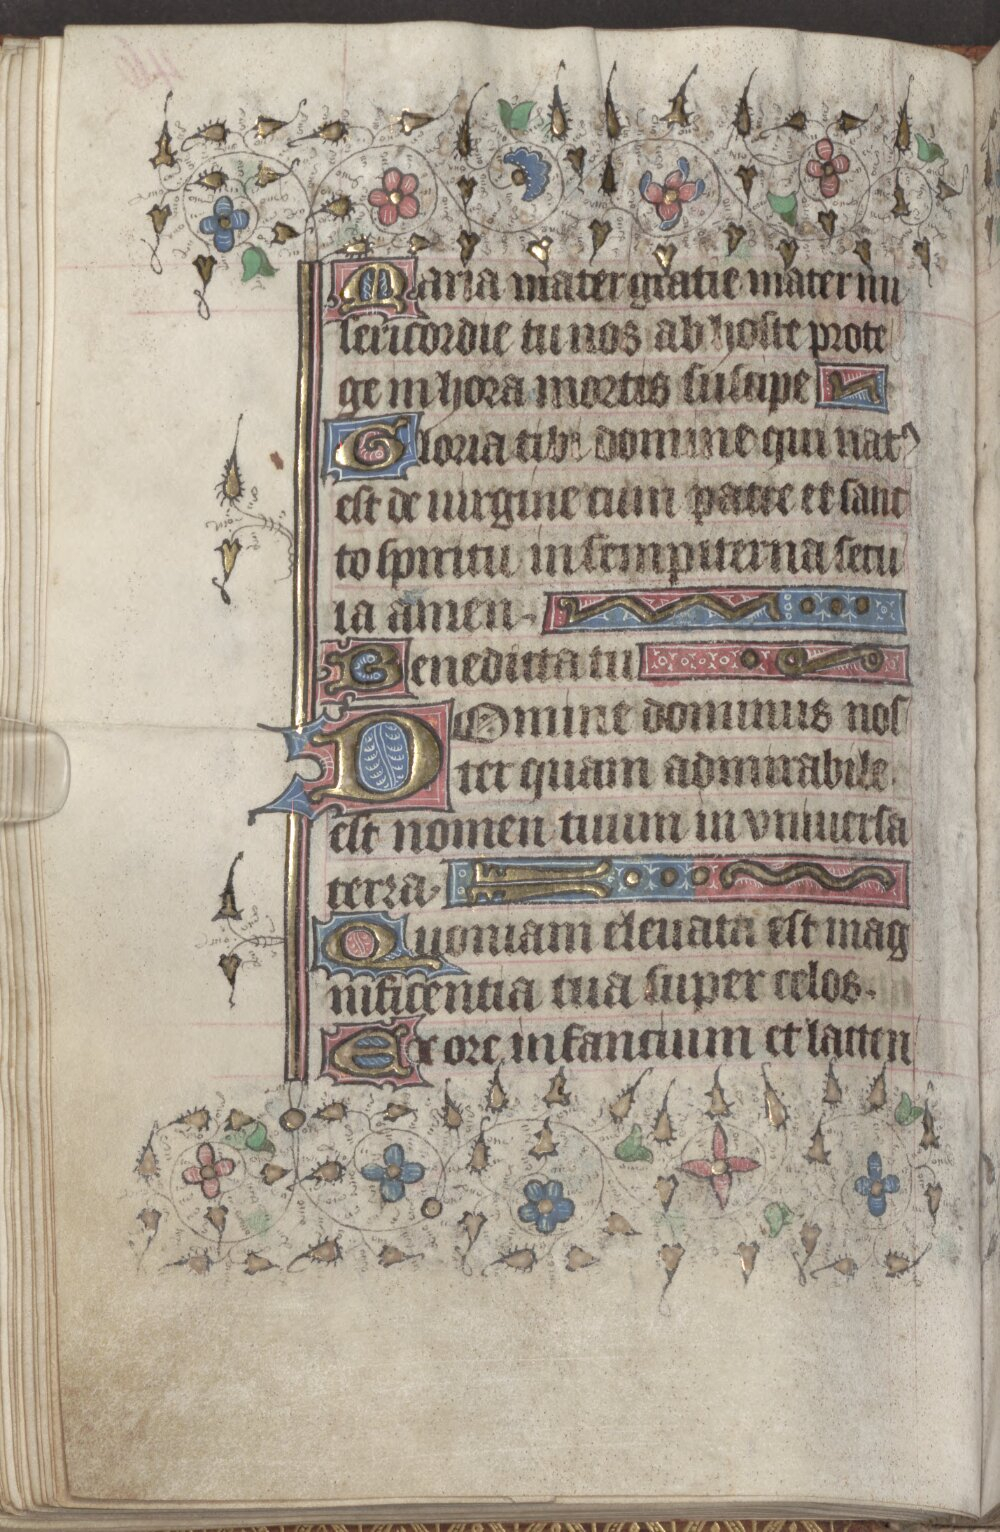 Maria mater gratie mater mi
sericordie tu nos ab hoste prote
ge in hora mortis suscipe
Gloria tibi domine qui nat⁹
est de uirgine cum patre et sanc
to spiritu in sempiterna secu
la amen.
Benedicta tu
Domine dominus nos
ter quam admirabile
est nomen tuum in vniuersa
terra.
Quoniam eleuata est mag
nificentia tua super celos.
Ex ore infancium et lacten